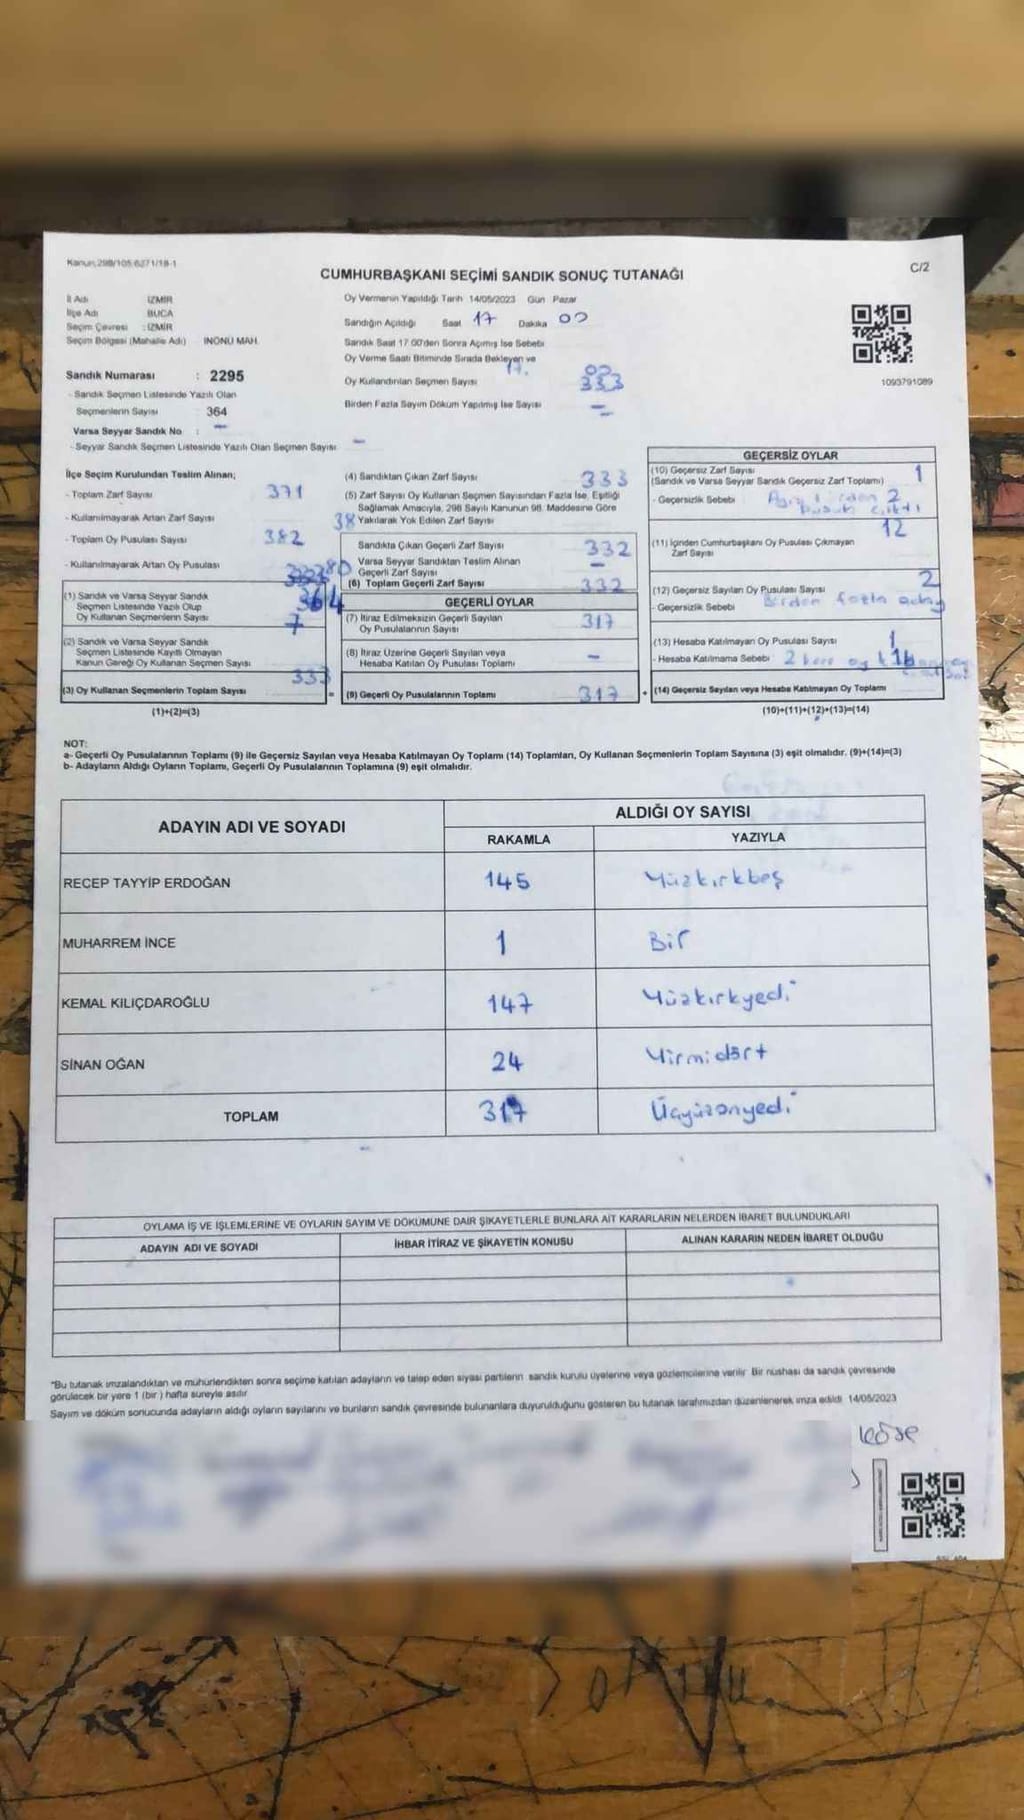 Kanun:298/105 6271/18-1
C/2
CUMHURBAŞKANI SEÇİMİ SANDIK SONUÇ TUTANAĞI
İl Adı İZMİR
İlçe Adı BUCA
Seçim Çevresi : İZMİR
Seçim Bölgesi (Mahalle Adı) İNÖNÜ MAH.
Sandık Numarası : 2295
- Sandık Seçmen Listesinde Yazılı Olan
Seçmenlerin Sayısı 364
Varsa Seyyar Sandık No : -
- Seyyar Sandık Seçmen Listesinde Yazılı Olan Seçmen Sayısı -
Oy Vermenin Yapıldığı Tarih 14/05/2023 Gün Pazar
Sandığın Açıldığı Saat 17 Dakika 00
Sandık Saat 17:00'den Sonra Açılmış İse Sebebi
Oy Verme Saati Bitiminde Sırada Bekleyen ve
17. 00
Oy Kullandırılan Seçmen Sayısı 333
Birden Fazla Sayım Döküm Yapılmış İse Sayısı -
1093791089
İlçe Seçim Kurulundan Teslim Alınan;
- Toplam Zarf Sayısı 371
- Kullanılmayarak Artan Zarf Sayısı 38
- Toplam Oy Pusulası Sayısı 382
- Kullanılmayarak Artan Oy Pusulası
(1) Sandık ve Varsa Seyyar Sandık
Seçmen Listesinde Yazılı Olup
Oy Kullanan Seçmenlerin Sayısı 364
7
(2) Sandık ve Varsa Seyyar Sandık
Seçmen Listesinde Kayıtlı Olmayan
Kanun Gereği Oy Kullanan Seçmen Sayısı
(3) Oy Kullanan Seçmenlerin Toplam Sayısı 333
(1)+(2)=(3)
(4) Sandıktan Çıkan Zarf Sayısı 333
(5) Zarf Sayısı Oy Kullanan Seçmen Sayısından Fazla İse, Eşitliği
Sağlamak Amacıyla, 298 Sayılı Kanunun 98. Maddesine Göre
Yakılarak Yok Edilen Zarf Sayısı
Sandıkta Çıkan Geçerli Zarf Sayısı 332
Varsa Seyyar Sandıktan Teslim Alınan
Geçerli Zarf Sayısı -
(6) Toplam Geçerli Zarf Sayısı 332
GEÇERLİ OYLAR
(7) İtiraz Edilmeksizin Geçerli Sayılan
Oy Pusulalarının Sayısı 317
(8) İtiraz Üzerine Geçerli Sayılan veya
Hesaba Katılan Oy Pusulası Toplamı -
(9) Geçerli Oy Pusulalarının Toplamı 317
GEÇERSİZ OYLAR
(10) Geçersiz Zarf Sayısı 1
(Sandık ve Varsa Seyyar Sandık Geçersiz Zarf Toplamı)
- Geçersizlik Sebebi 2
12
(11) İçinden Cumhurbaşkanı Oy Pusulası Çıkmayan
Zarf Sayısı
(12) Geçersiz Sayılan Oy Pusulası Sayısı 2
- Geçersizlik Sebebi Birden fazla aday
(13) Hesaba Katılmayan Oy Pusulası Sayısı 1
- Hesaba Katılmama Sebebi 2 kere oy
(14) Geçersiz Sayılan veya Hesaba Katılmayan Oy Toplamı 16
(10)+(11)+(12)+(13)=(14)
NOT:
a- Geçerli Oy Pusulalarının Toplamı (9) ile Geçersiz Sayılan veya Hesaba Katılmayan Oy Toplamı (14) Toplamları, Oy Kullanan Seçmenlerin Toplam Sayısına (3) eşit olmalıdır. (9)+(14)=(3)
b- Adayların Aldığı Oyların Toplamı, Geçerli Oy Pusulalarının Toplamına (9) eşit olmalıdır.
ADAYIN ADI VE SOYADI ALDIĞI OY SAYISI
RAKAMLA YAZIYLA
RECEP TAYYİP ERDOĞAN 145 Yüzkırkbeş
MUHARREM İNCE 1 Bir
KEMAL KILIÇDAROĞLU 147 Yüzkırkyedi
SİNAN OĞAN 24 Yirmidört
TOPLAM 317 Üçyüzonyedi
OYLAMA İŞ VE İŞLEMLERİNE VE OYLARIN SAYIM VE DÖKÜMÜNE DAİR ŞİKAYETLERLE BUNLARA AİT KARARLARIN NELERDEN İBARET BULUNDUKLARI
ADAYIN ADI VE SOYADI İHBAR İTİRAZ VE ŞİKAYETİN KONUSU ALINAN KARARIN NEDEN İBARET OLDUĞU
"Bu tutanak imzalandıktan ve mühürlendikten sonra seçime katılan adayların ve talep eden siyasi partilerin sandık kurulu üyelerine veya gözlemcilerine verilir. Bir nüshası da sandık çevresinde
görülecek bir yere 1 (bir) hafta süreyle asılır.
Sayım ve döküm sonucunda adayların aldığı oyların sayılarını ve bunların sandık çevresinde bulunanlara duyurulduğunu gösteren bu tutanak tarafımızdan düzenlenerek imza edildi 14/05/2023
köse